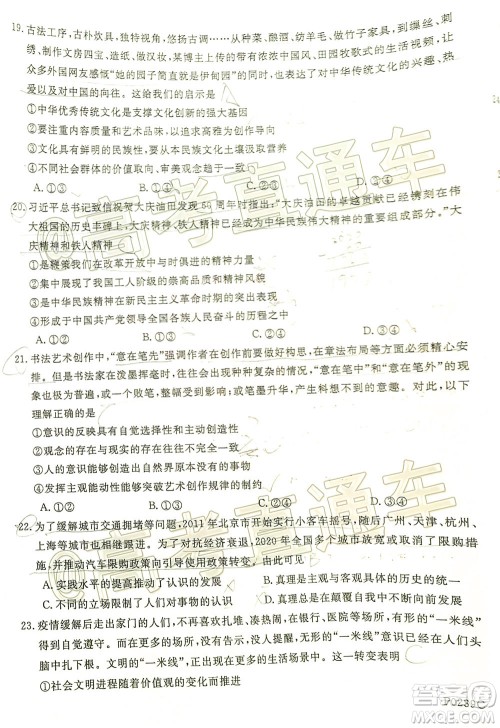 19. 古法工序，古朴炊具，独特视角，悠扬古调……从种菜、熬酒、纺羊毛、做竹子家具，到缫丝、刺绣、
制作文房四宝、造纸、做汉妆，某博主上传的带有浓郁中国传统文化、田园牧歌式的生活视频，让
众多外国网友感慨“她的园子简直就是伊甸园”“她让我看到了中国文化”，并表达了对中国文化的热
爱以及对中国的向往。这给我们的启示是
①中华优秀传统文化是支撑文化创新的强大基因
②文化创新要立足社会实践，以追求高雅为创新方向
③文化创新要有鲜明的民族性，要从中华民族文化中汲取营养
④不同社会群体的价值取向、审美观念趋于统一
A. ①③ B. ①④ C. ②③ D. ②④
20. 习近平总书记致信祝贺大庆油田发现60周年时指出：“大庆油田的卓越贡献已经镌刻在伟
大祖国的历史丰碑上，大庆精神、铁人精神已经成为中华民族伟大精神的重要组成部分。”大
庆精神和铁人精神
①是鞭策我们在改革开放中与时俱进的精神力量
②集中展现了我国工人阶级的崇高品质和精神风貌
③是中华民族精神和时代精神的集中体现
④形成于中国共产党领导全国人民进行革命斗争的过程中
A. ①② B. ①③ C. ②④ D. ③④
21. 书法艺术创作中，“意在笔先”强调作者在创作前要做好构思，在章法布局等方面必须精心安
排。但是书法家在泼墨挥毫时，往往会出现种种复杂的情况，“意在笔中”和“意在笔外”的现
象也极为普遍，或干或枯，或一个败笔，都使整篇受到影响；或笔墨升华，产生意外效果。以下
理解正确的是
①意识的反映具有自觉选择性和主动创造性
②无限发展的意识能够创造出自然界所没有的东西
③人能够能动地认识尚未存在的事物
④发挥主观能动性能够突破艺术创作规律的制约
A. ①③ B. ①④ C. ②③ D. ②④
22. 为了缓解城市交通拥堵等问题，2011年北京市开始实行小客车摇号，随后广州、天津、杭州、
上海等城市也相继跟进。为了对抗经济衰退，2020年全国多个城市放宽或取消了限购措施，
并推动汽车限购政策向引导使用政策转变，这说明
A. 实践水平的提高推动了人们认识的发展 B. 真理与谬误在一定条件下可以相互转化
C. 人们的认识决定了人们对事物的价值判断 D. 认识事物要把握事物的具体的时间和条件
23. 疫情缓解后走出家门的人们，在超市、银行、医院等场所，有形的“一米线”
得到自觉遵守。而在更多的场所，无形的“一米线”意识已经在人们头
脑中扎下根。文明的“一米线”出现在更多的场景，这一转变表明
①社会文明进程随着价值观的变化而推进